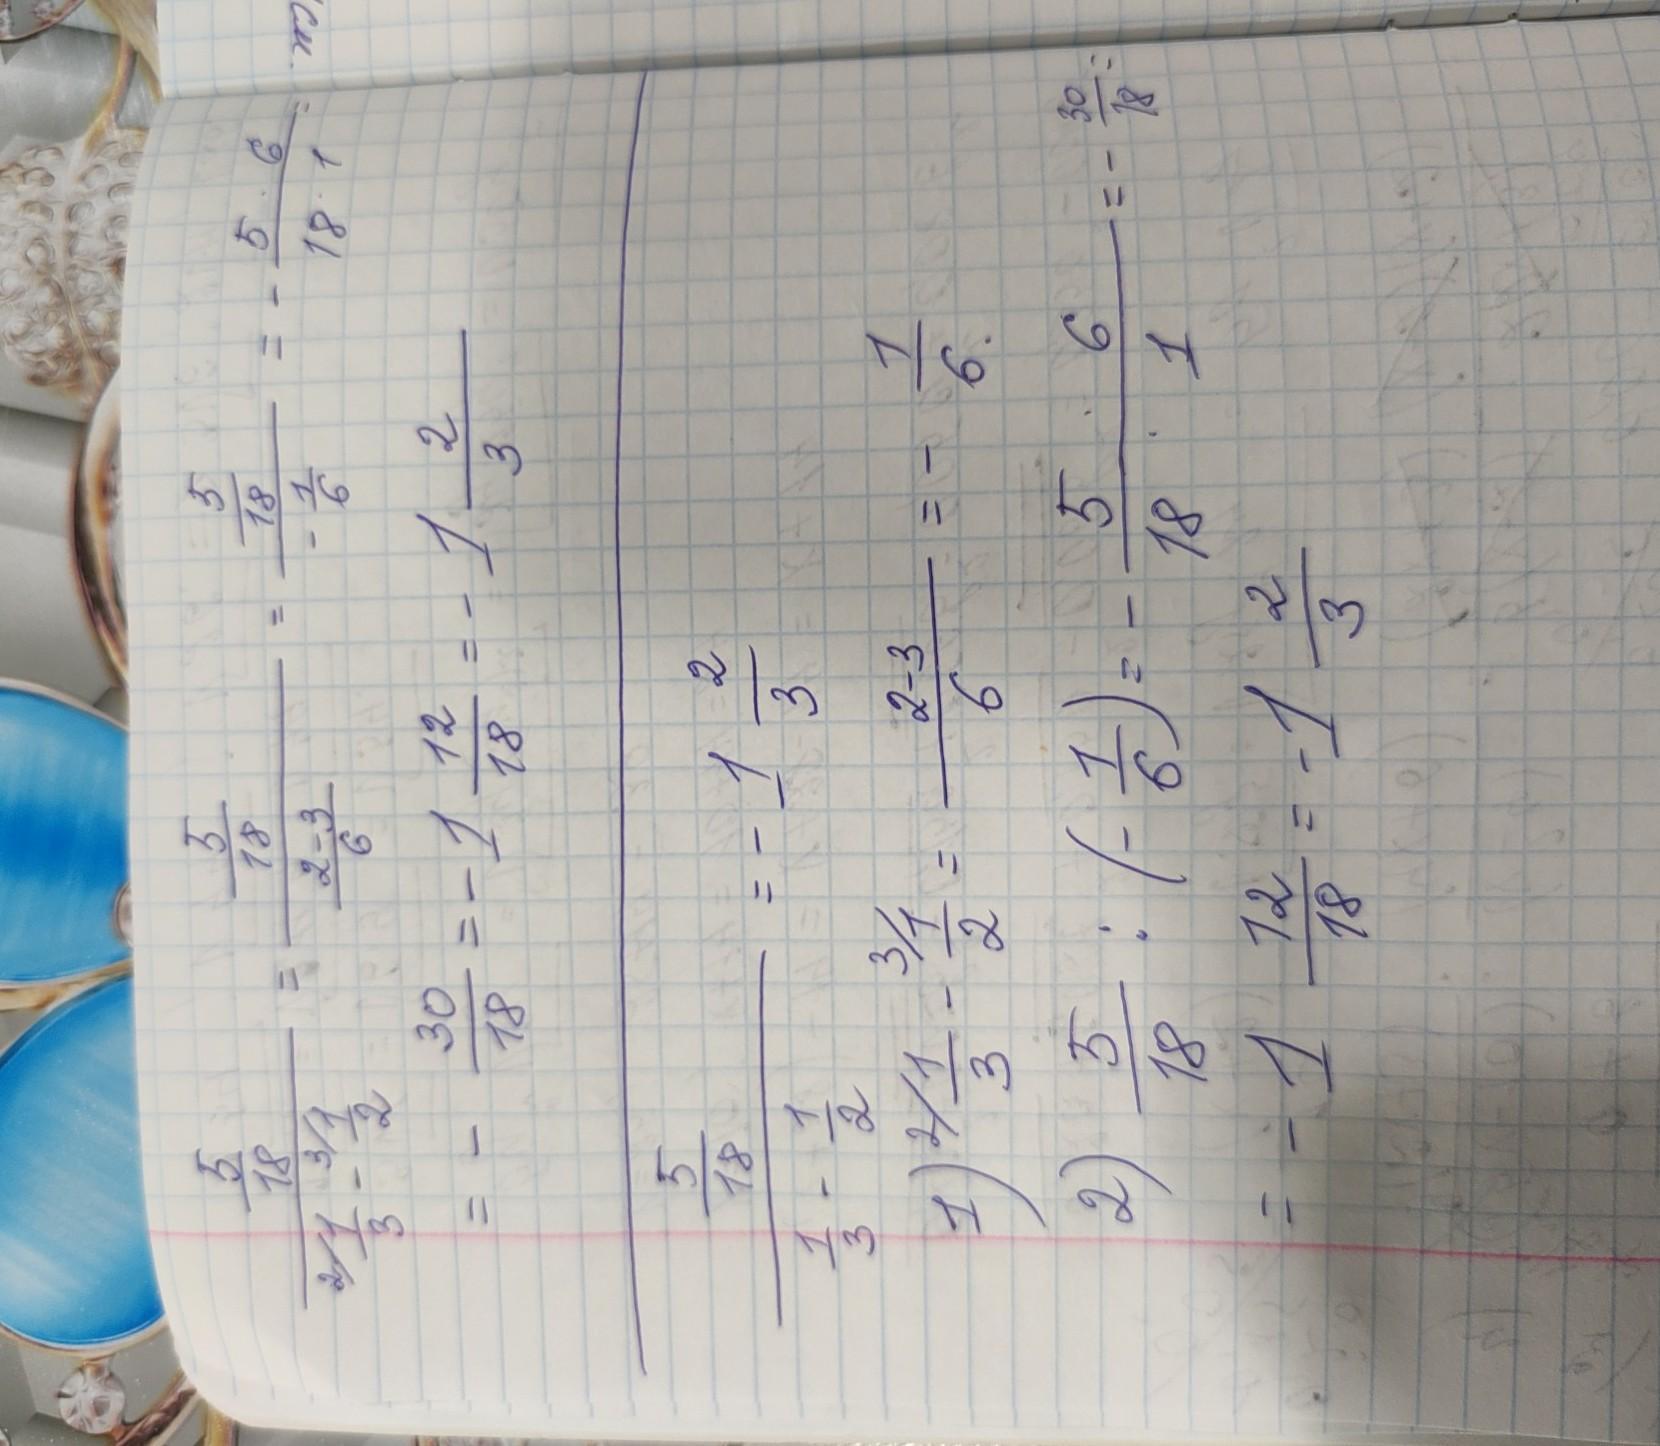 5/18 / (2/ 1/3 - 3/ 1/2) = 5/18 / (2-3)/6 = 5/18 / -1/6 = - 5 · 6 / 18 · 1 =
= - 30/18 = - 1 12/18 = - 1 2/3
5/18 / (1/3 - 1/2) = - 1 2/3
1) 2/ 1/3 - 3/ 1/2 = (2-3)/6 = - 1/6.
2) 5/18 : (- 1/6) = - 5 · 6 / 18 · 1 = - 30/18 =
= - 1 12/18 = - 1 2/3